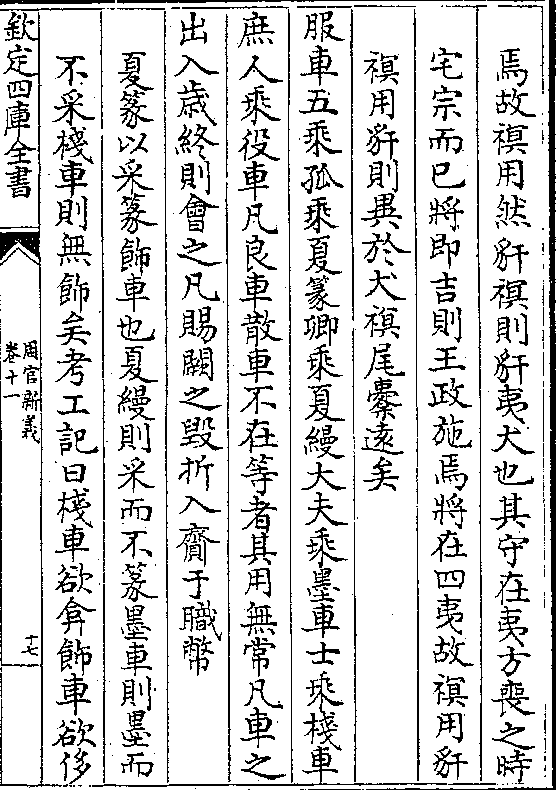 焉故𧜀用然豻𧜀則豻夷犬也其守在夷方喪之時
宅宗而已將即吉則王政施焉將在四夷故𧜀用豻
𧜀用豻則異於犬𧜀尾櫜遠矣
服車五乘孤乘夏篆卿乘夏縵大夫乘墨車士乘棧車
庶人乘役車凡良車散車不在等者其用無常凡車之
出入歳終則會之凡賜闕之毀折入齎于職幣
夏篆以采篆飾車也夏縵則采而不篆墨車則墨而
不采棧車則無飾矣考工記曰棧車欲弇飾車欲侈
欽定四庫全書
周官新義
卷十一
十七